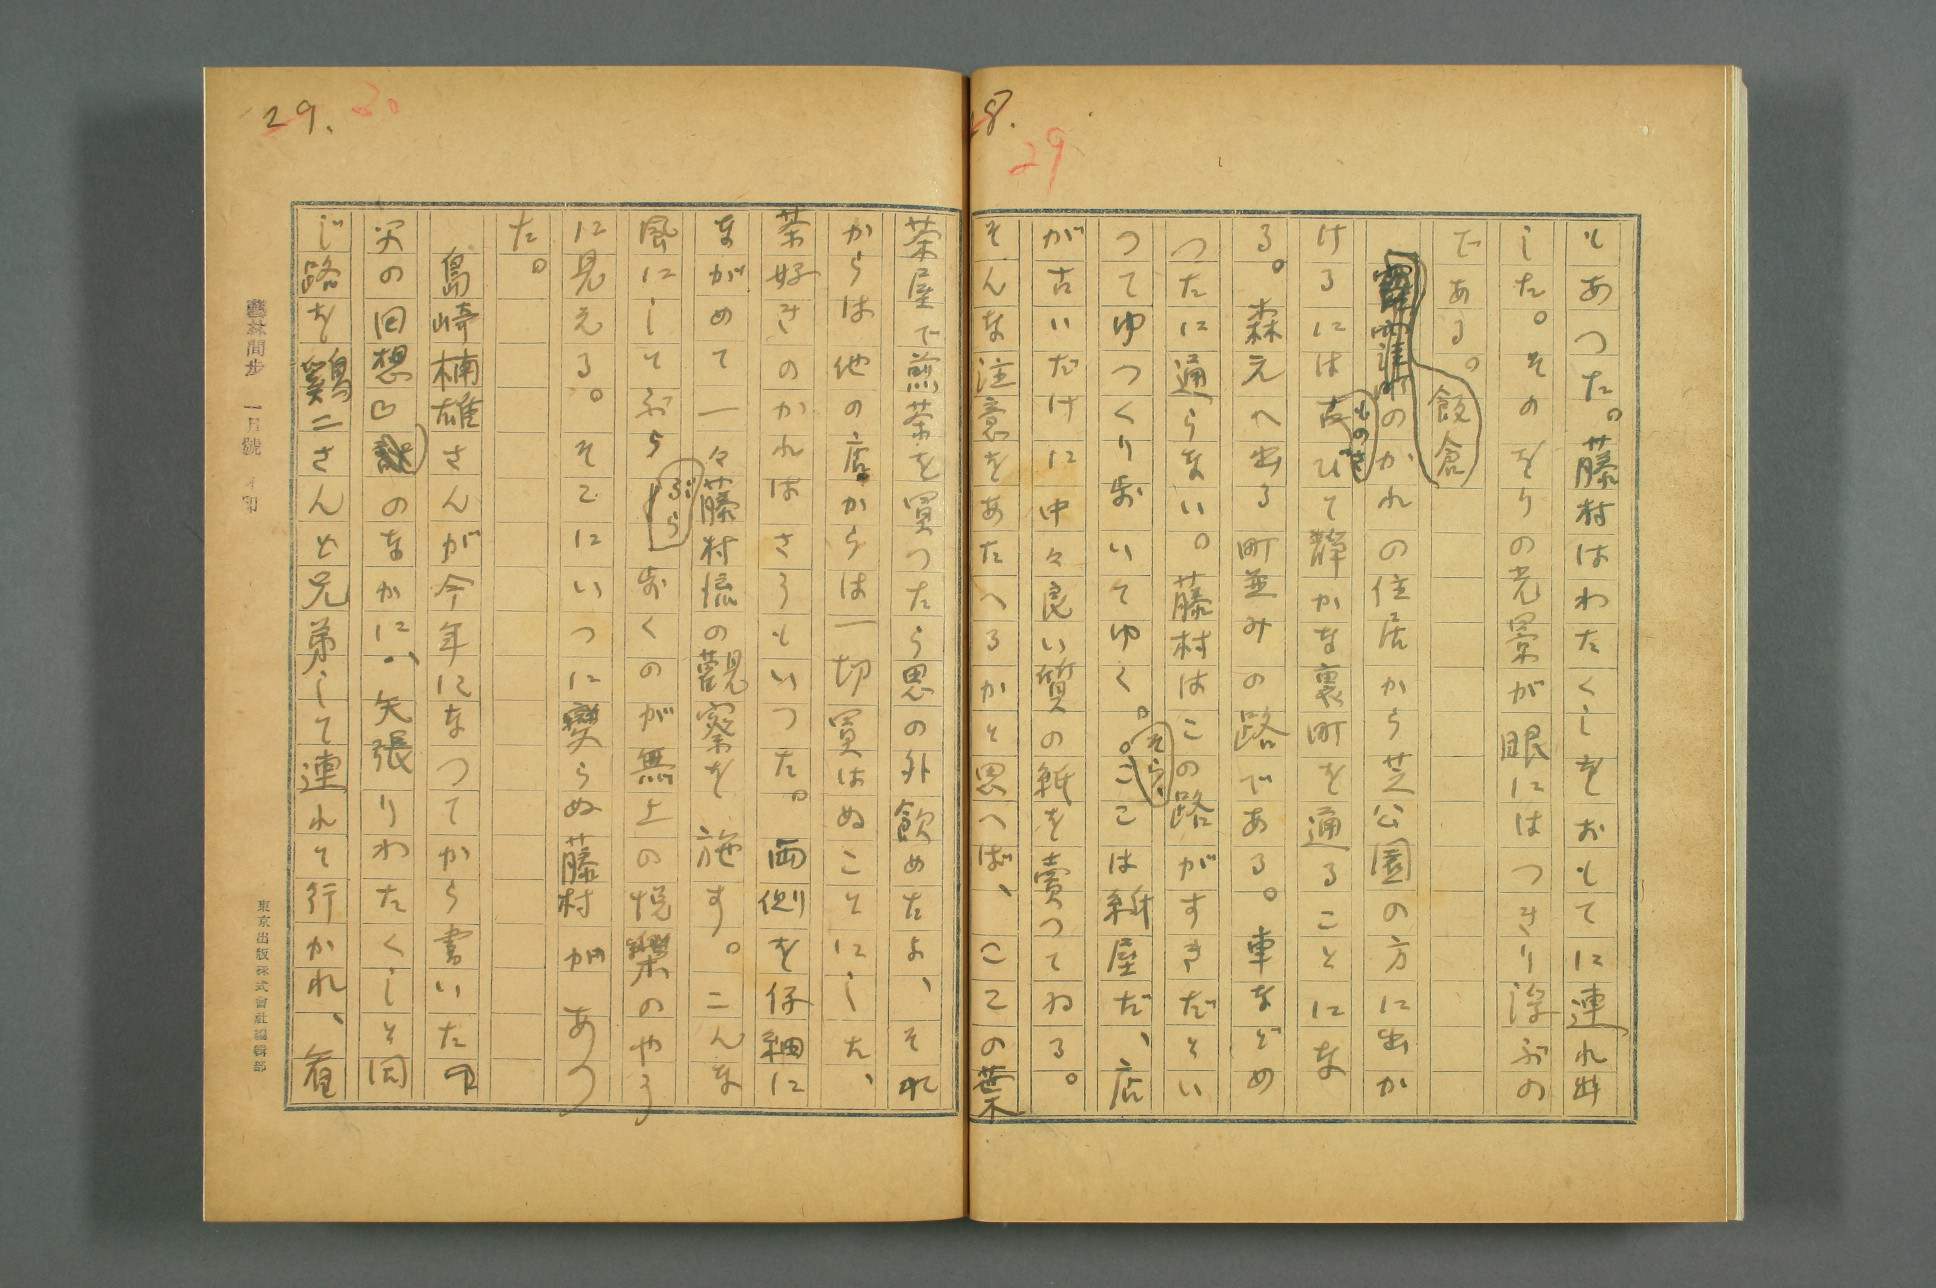 28.
29
もあつた。藤村はわたくしをおもてに連れ出
した。そのをりの光景が眼にはつきり浮ぶの
である。
飯倉
のかれの住居から芝公園の方に出か
けるには古びて静かな裏町を通ることにな
ものさ
る。森元へ出る町並みの路である。車などめ
つたに通らない。藤村はこの路がすきだとい
つてゆつくり歩いてゆく。。ここは紙屋だ、店
そら、
が古いだけに中々良い質の紙を売つてゐる。
そんな注意をあたへるかと思へば、ここの葉
29.
30
茶屋で煎茶を買つたら思の外飲めたよ、それ
からは他の店からは一切買はぬことにした、
茶好きのかれはさうもいつた。両側を仔細に
ながめて一々藤村流の観察を施す。こんな
風にしてぶら歩くのが無上の悦樂のやう
ぶら
に見える。そこにいつに変らぬ藤村があつ
た。
島崎楠雄さんが今年になつてから書いた
父の回想のなかに、矢張りわたくしと同
じ路を鶏二さんと兄弟して連れて行かれ、着
藝林間歩 一月號
東京出版株式會社編輯部